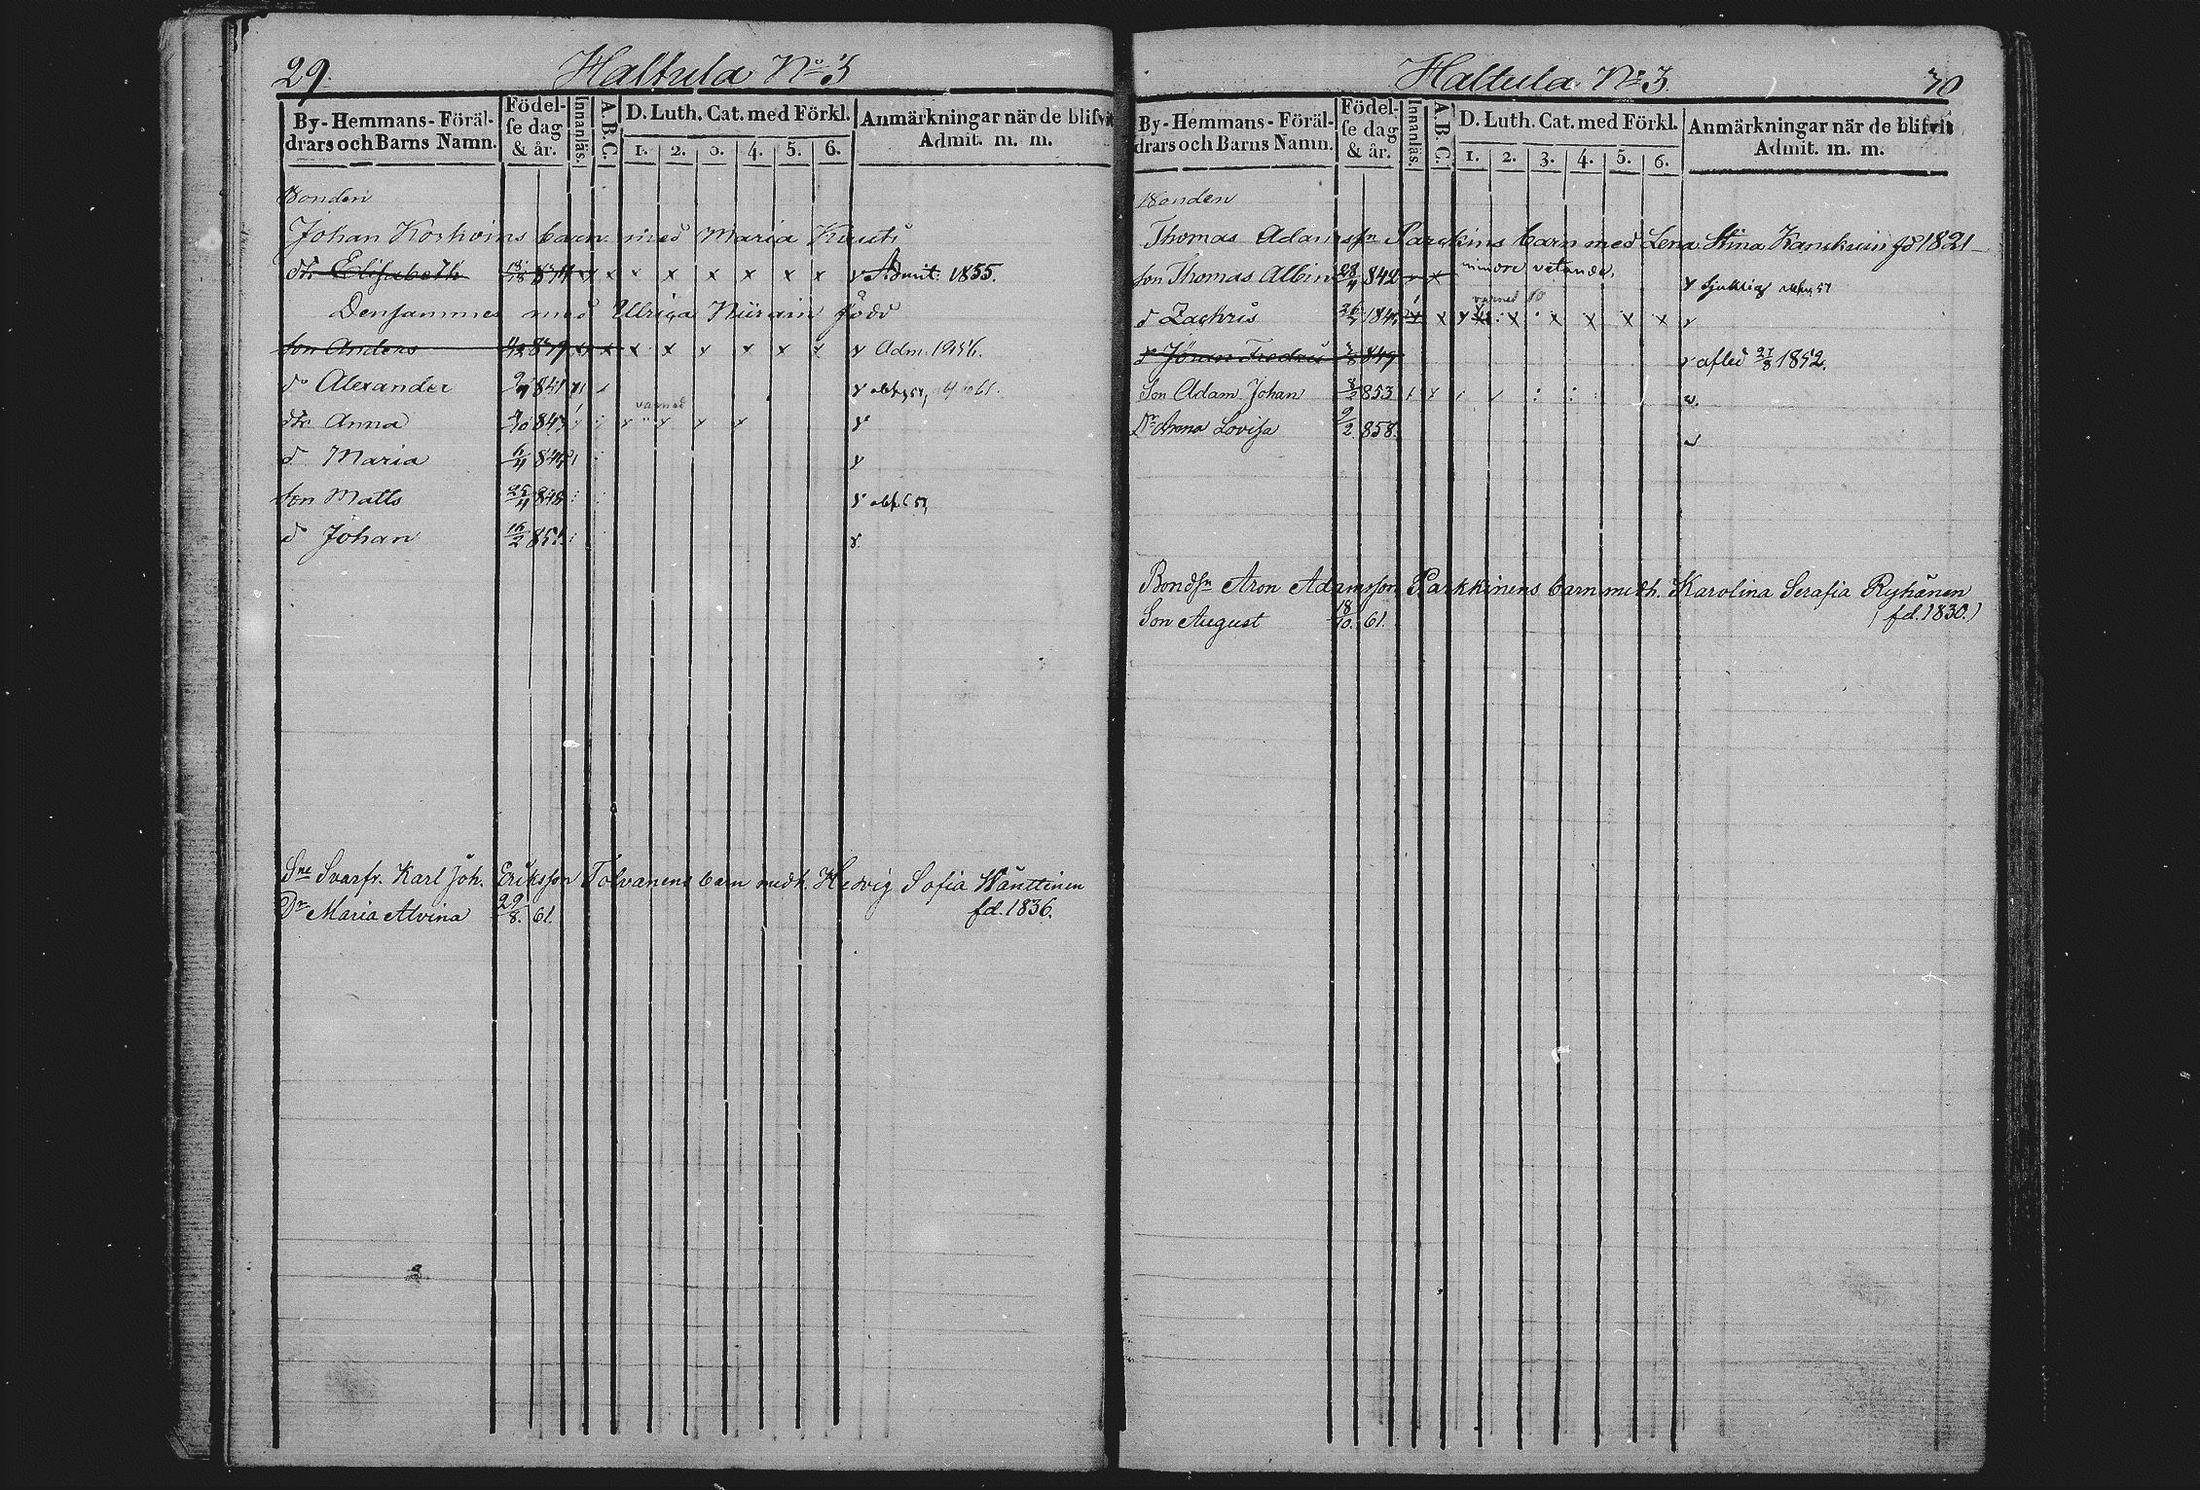 29.
Haltula No 3
By-Hemmans-Föräl-
drars och Barns Namn.
Födel-
se dag
& år.
Innanläs.
A.B.C.
D. Luth. Cat. med Förkl.
1. 2. 3. 4. 5. 6.
Anmärkningar när de blifvit
Admit. m. m.
Bonden
Johan barn med Maria
dtr Elisabeth x x x x x x Admit. 1855.
Densammes med Ulrica född
Son Anders x x x x Adm. 1856.
do Alexander 841
dtr Anna varned
d Maria
Son Matts
d Johan 16/2 851
Sne Svarfv. Karl Joh. Eriksson Tolvanens barn med h. Hedvig Sofia Wänttinen
Dr Maria Alvina 29/8. 61. fd. 1836.
Haltula No 3.
30
By-Hemmans-Föräl-
drars och Barns Namn.
Födel-
se dag
& år.
Innanläs.
A.B.C.
D. Luth. Cat. med Förkl.
1. 2. 3. 4. 5. 6.
Anmärkningar när de blifvit
Admit. m. m.
Bonden
Thomas Adamsson Parckins barn med Lena Stina fd 1821
Son Thomas Albin 28/4 842 mindre vetande. sjuklig
varned
d Zachris x x x x x x
d Johan Fredric 849 afled 27/8 1852.
Son Adam Johan 8/2 853
Dr Anna Lovisa 9/2 858.
Bondsn Aron Adamsson Parkkinens barn med h. Karolina Serafia Ryhänen
Son August 18/10. 61. (fd. 1830.)